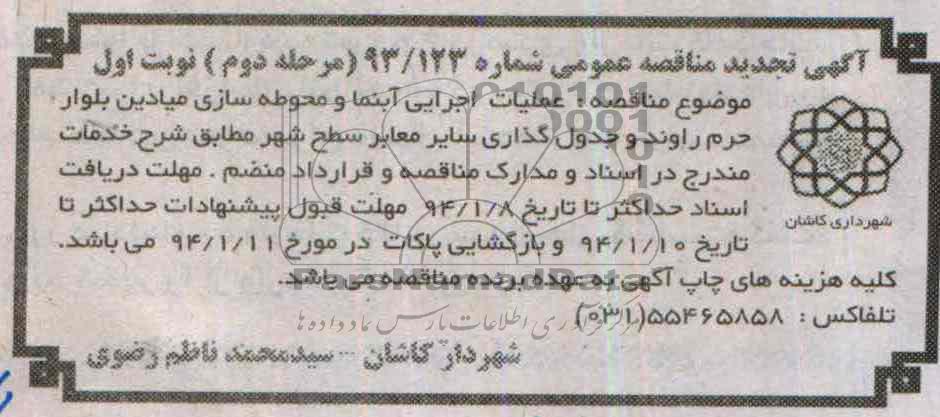 آگهی تجدید مناقصه عمومی شماره ۹۳/۱۲۳ (مرحله دوم) نوبت اول
موضوع مناقصه : عملیات اجرایی آبنما و محوطه سازی میادین بلوار
حرم راوند و جدول گذاری سایر معابر سطح شهر مطابق شرح خدمات
مندرج در اسناد و مدارک مناقصه و قرارداد منضم . مهلت دریافت
اسناد حداکثر تا تاریخ ۹۴/۱/۸ مهلت قبول پیشنهادات حداکثر تا
تاریخ ۹۴/۱/۱۰ و بازگشایی پاکات در مورخ ۹۴/۱/۱۱ می باشد.
شهرداری کاشان
کلیه هزینه های چاپ آگهی به عهده برنده مناقصه می باشد.
ParsNamadData
تلفاکس : ۵۵۴۶۵۸۵۸(۰۳۱)
مرکز فرآوری اطلاعات پارس نماد داده ها
شهردار کاشان - سیدمحمد ناظم رضوی